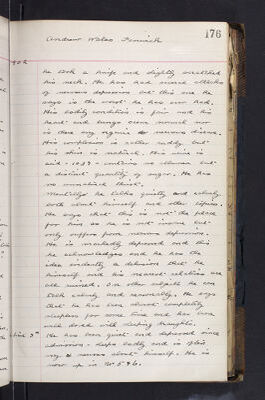 176
Andrew Wales Fenwick
he took a knife and slightly scratched
his neck. He has had several attacks
of nervous depression but this one he
says is the worst he has ever had.
His bodily condition is fair and his
heart and lungs seem normal nor
is there any organic nervous disease.
His complexion is rather ruddy but
his skin is natural. His urine is
acid - 1033 - contains no albumen but
a distinct quantity of sugar. He has
no unnatural thirst.
Mentally he talks quietly and calmly
both about himself and other topics.
He says that this is not the place
for him as he is not insane but
only suffers from nervous depression.
He is markedly depressed and this
he acknowledges and he has the
idea evidently a delusion that he
himself and his nearest relatives are
all ruined. On other subjects he can
talk calmly and rationally. He says
that he has been almost completely
sleepless for some time and has been
well dosed with sleeping draughts.
He has been quiet and depressed since
admission - sleeps badly and is
very nervous about himself. He is
now up in No 5 &